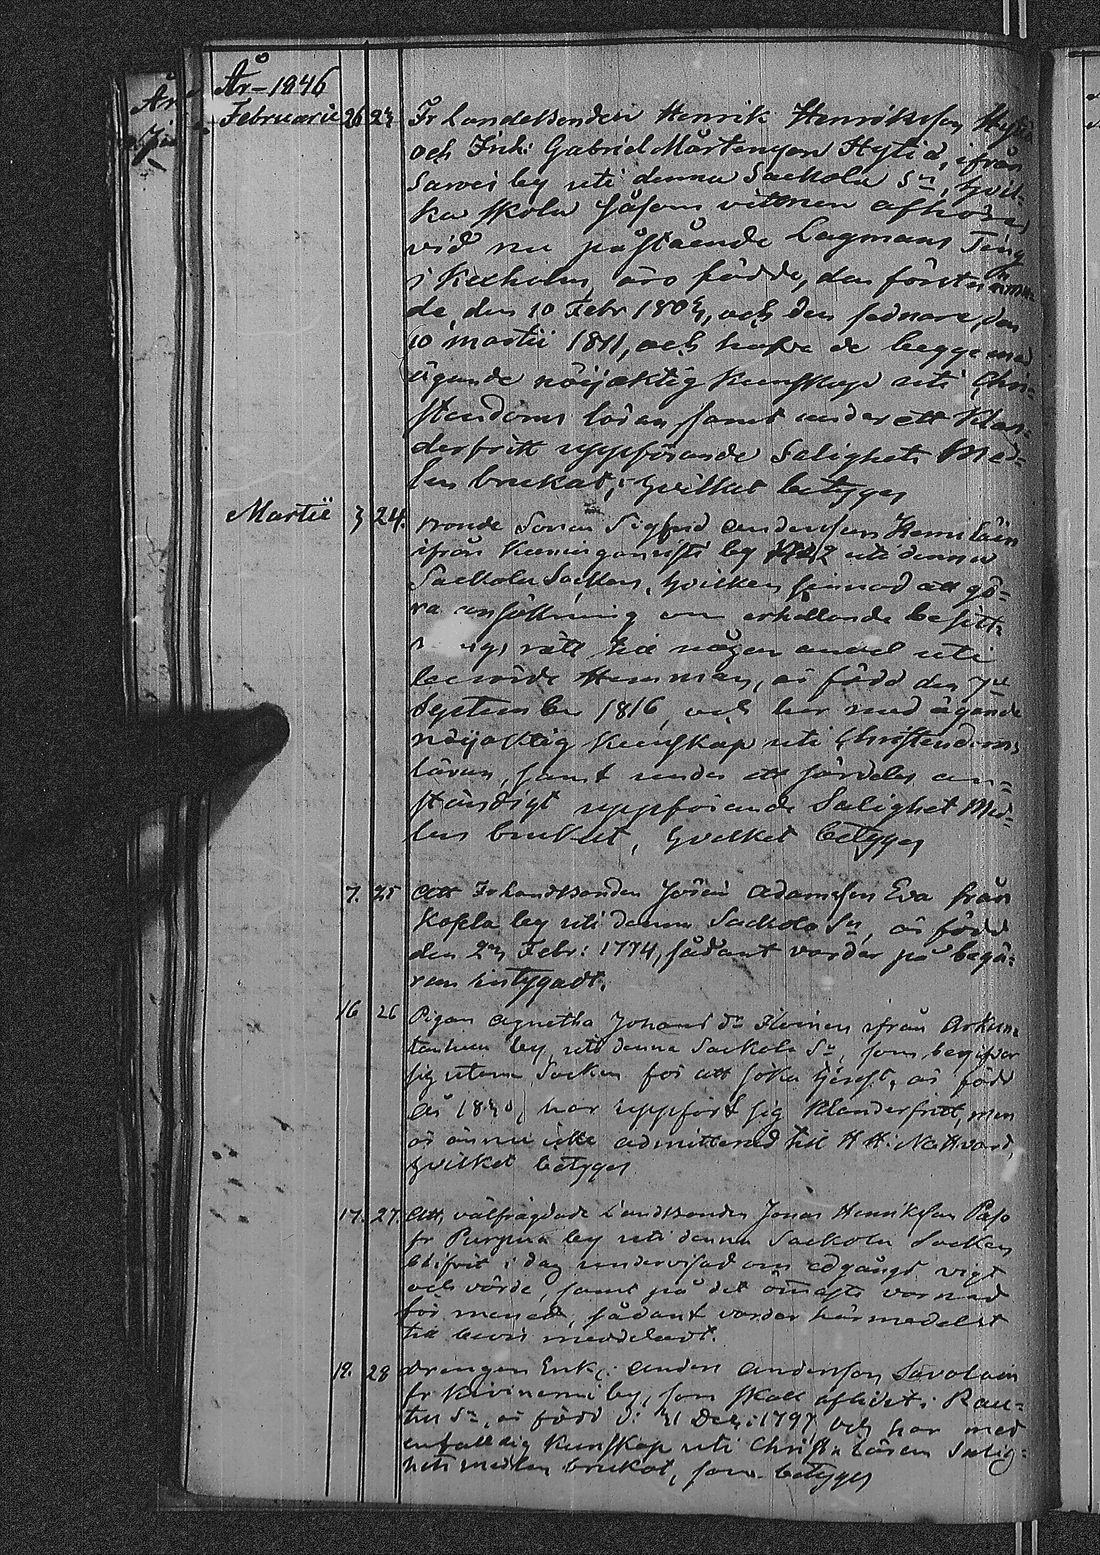 År 1846
Februarii 26 23 Fr Landbonden Henrik Henriksson Hytiä
och Inh: Gabriel Mårtensson Hytiä, ifrån
by uti denna Sackola Sn, hvil-
ka skola såsom vittnen afhöras
vid nu påstående Lagmans Ting
i Kexholm, äro födde, den förstnämn-
de, den 10 Febr 1803, och den sednare, den
10 martii 1811, och hafva de begge med
ägande nöijaktig kunskap uti Chri-
stendoms läran samt under ett klan-
derfritt uppförande Salighets Med-
len brukat, hvilket betyges
Martii 3 24. Bonde Sonen Sigfrid Andersson Hemiläin
ifrån by uti denna
Sackola Socken, hvilken sinnad att gö-
ra ansökning om erhållande besitt-
nings rätt till någon andel uti
Hemman, är född den 7de
September 1816, och har med ägande
nöijaktig kunskap uti Christendoms
läran, samt under ett särdeles an-
ständigt uppförande Salighets Med-
len brukat, hvilket betyges
7. 25 Att Fr Landbonden Adamsson Eva från
Kopla by uti denna Sackola Sn, är född
den 23 Febr: 1774, sådant varder på begä-
ran intygadt.
16 26 Pigan Agnetha Johans dr ifrån
by, uti denna Sackola Sn, som begifver
sig utom Socken för att söka tjenst, är född
år 1830, har uppfört sig klanderfritt, men
är ännu icke admitterad till H. H: Nattvard,
hvilket betyges
17. 27. Att, välfrägdade Landbonden Jonas Henriksson Paso
fr by uti denna Sackola Socken
blifvit i dag undervisad om edgångs vigt
och värde, samt på det ömaste varnad
för mened, sådant varder härmedelst
till bevis meddeladt.
19. 28 Drengen Enkl: Anders Andersson Savolain
fr by, som skall aflidit i Rau-
tus Sn, är född d: 31 Dec: 1797, och har med
enfaldig kunskap uti Christa Läran Salig-
hets medlen brukat, som betyges